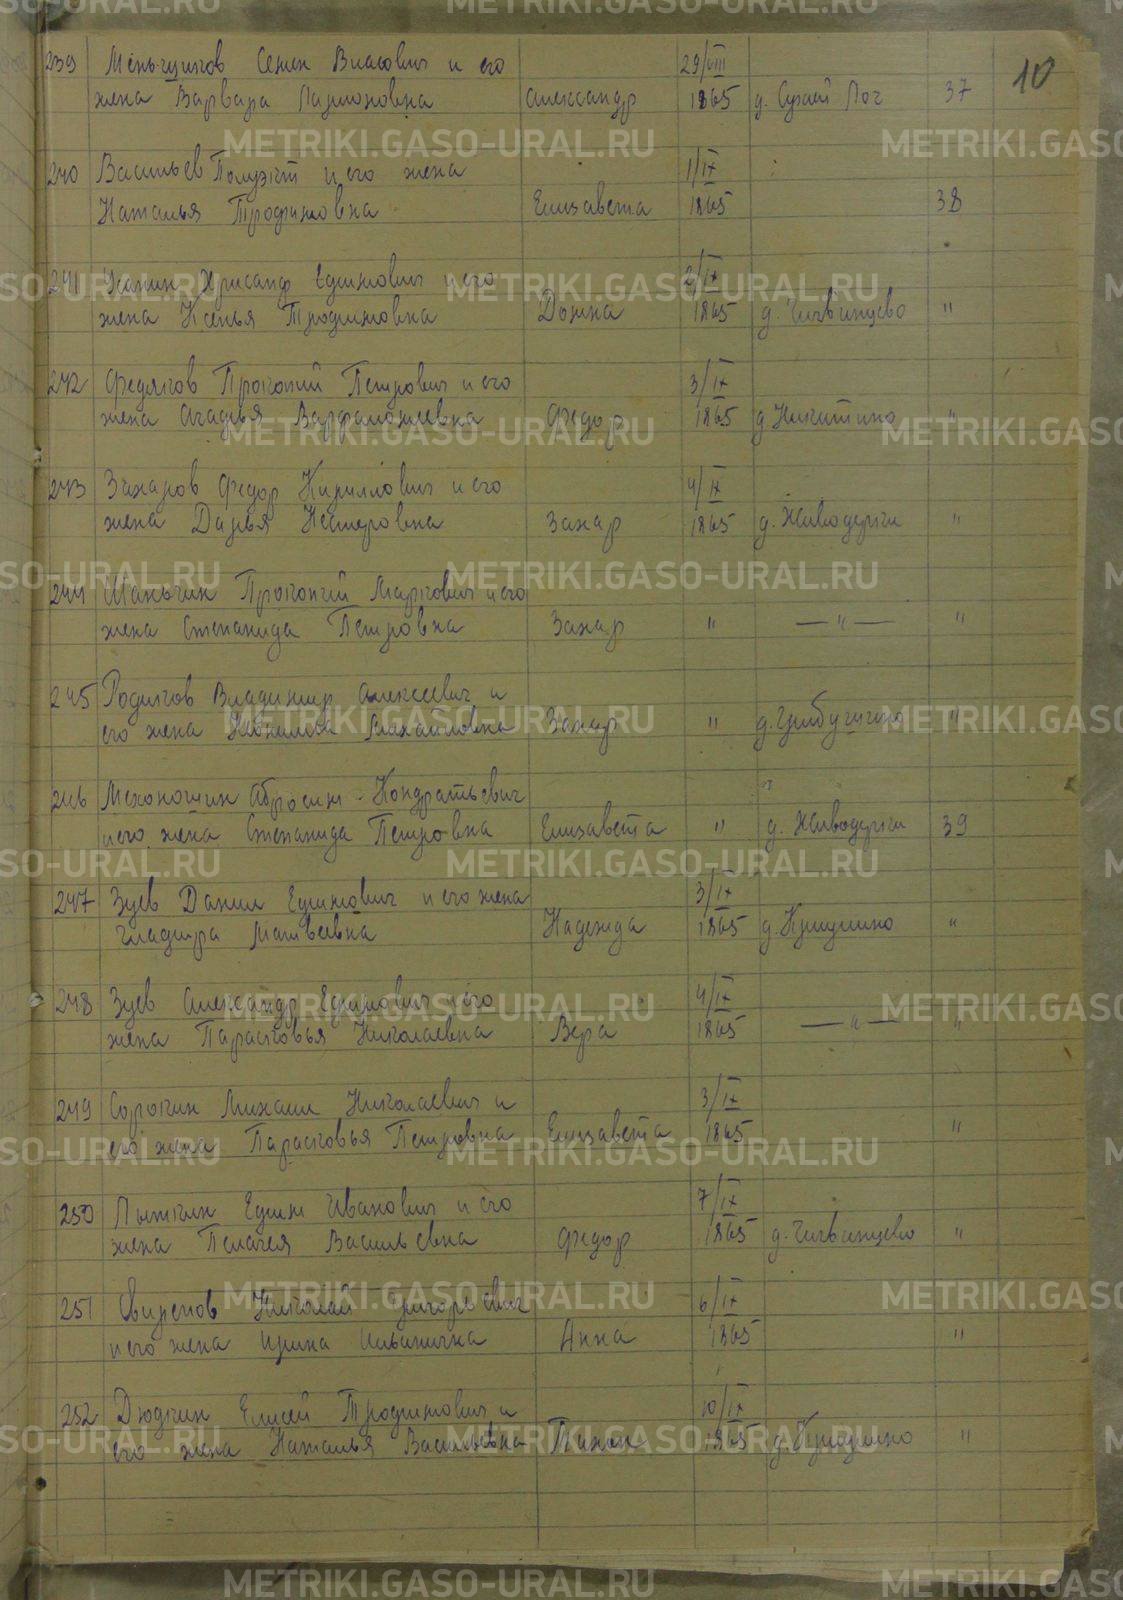 10
239 Меньщиков Семен Власович и его 29/VIII
жена Варвара Ларионовна Александр 1865 д. Сухой Лог 37
240 Васильев Полуэкт и его жена 1/IX
Наталья Трофимовна Елизавета 1865 38
241 Усанин Хрисанф Ефимович и его 2/IX
жена Ксенья Трофимовна Домна 1865 д. Чигвинцево "
242 Федяков Прокопий Петрович и его 3/IX
жена Агафья Варфаломеевна Федор 1865 д Никитино "
243 Захаров Федор Кириллович и его 4/IX
жена Дарья Нестеровна Захар 1865 д. Живодерки "
244 Шанькин Прокопий Маркович и его
жена Степанида Петровна Захар " — " — "
245 Родыгов Владимир Алексеевич и
его жена Михайловна Захар " д. "
246 Механошин Абросим Кондратьевич
и его жена Степанида Петровна Елизавета " д. Живодерки 39
247 Зуев Данил Ефимович и его жена 3/IX
Гладфра Матвеевна Надежда 1865 д. "
248 Зуев Александр Ефимович и его 4/IX
жена Парасковья Николаевна Вера 1865 — " — "
249 Сорокин Михаил Николаевич и 3/IX
его жена Парасковья Петровна Елизавета 1865 "
250 Лыткин Ефим Иванович и его 7/IX
жена Пелагея Васильевна Федор 1865 д. Чигвинцево "
251 Свиренов Николай Григорьевич 6/IX
и его жена Ирина Ильинична Анна 1865 "
252 Дюдкин Елисей Трофимович и 10/IX
его жена Наталья Васильевна Тихон 1865 д. "
METRIKI.GASO-URAL.RU